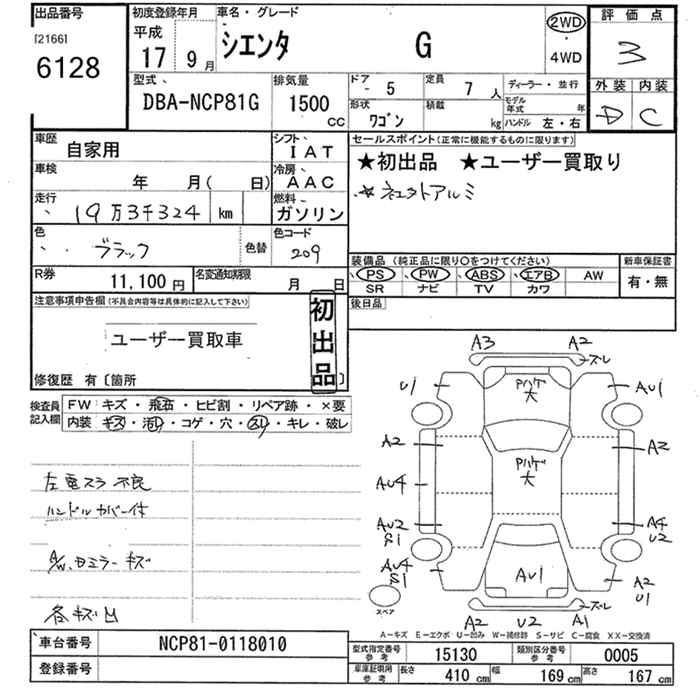 出品番号
[2166]
6128
初度登録年月
平成
17 9 月
車名・グレード
シエンタ G
2WD
・
4WD
評価点
3
外装 内装
D C
型式
DBA-NCP81G
排気量
1500
CC
ドア
- 5
定員
7 人
形状
ワゴン
積載
kg
ディーラー・並行
モデル年式 年
ハンドル 左・右
車歴
自家用
シフト
IAT
車検
年 月( 日)
冷房
AAC
走行
19万3千324 km
燃料
ガソリン
色
ブラック
色替
色コード
209
R券
11,100 円
名変通知期限
月 日
セールスポイント(正常に機能するものに限ります)
★初出品 ★ユーザー買取り
装備品 (純正品に限り○をつけてください)
PS ・ PW ・ ABS ・ エアB ・ AW
SR ナビ TV カワ
新車保証書
有・無
後日品
注意事項申告欄(不具合内容等は具体的に記入して下さい)
ユーザー買取車
初出品
修復歴 有〔箇所 〕
検査員記入欄
FW キズ・飛石・ヒビ割・リペア跡・×要
内装 キズ・汚レ・コゲ・穴・スレ・キレ・破レ
左電スラ不良
ハンドルカバー付
A/W、ミラーキズ
各キズ凹
A3 A2
ズレ
U1 AU1
Pハゲ
大
A2 A2
AU4
Pハゲ
大
AU2 A4
S1 U2
AU4
S1
AU1
A2
U1
スペア
ズレ
A2 U2 A1
A-キズ E-エクボ U-凹み W-補修跡 S-サビ C-腐食 XX-交換済
車台番号 NCP81-0118010
登録番号
型式指定番号
参考
15130
類別区分番号
参考
0005
車庫証明用
参考
長さ 410 cm 幅 169 cm 高さ 167 cm